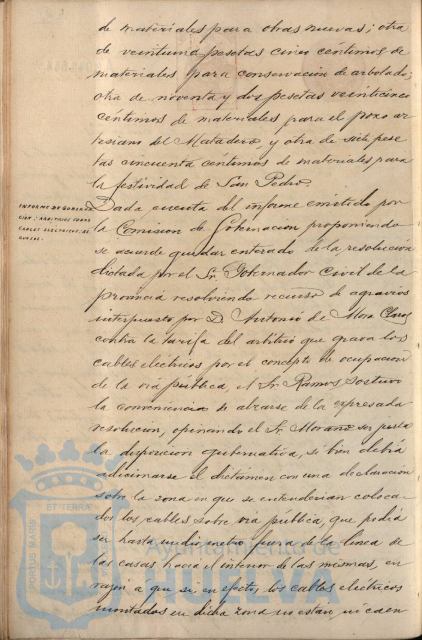 de materiales para obras nuevas; otra
de veintiuna pesetas cinco céntimos de
materiales para conservacion de arbolado;
otra de noventa y dos pesetas veinticinco
céntimos de materiales para el pozo ar-
tesiano del Matadero, y otra de siete pese
tas cincuenta céntimos de materiales para
la festividad de San Pedro.
INFORME DE GOBERNA
CION; ARBITRIOS SOBRE
CABLES ELECTRICOS; RE
CURSO.
Dada cuenta del informe emitido por
la Comision de Gobernacion proponiendo
se acuerde quedar enterado de la resolucion
dictada por el Sr. Gobernador Civil de la
provincia resolviendo recurso de agravios
interpuesto por D. Antonio de Mora Claros
contra la tarifa del arbitrio que grava los
cables electricos por el concepto de ocupacion
de la via pública, el Sr. Ramos sostuvo
la conveniencia de alzarse de la expresada
resolucion, opinando el Sr. Morano ser justa
la disposicion gubernativa, si bien debia
adicionarse el dictamen con una declaracion
sobre la zona en que se entenderian coloca-
dos los cables sobre via pública, que podia
ser hasta medio metro fuera de la linea de
las casas hacia el interior de las mismas, en
razon a que si, en efecto, los cables electricos
montados en dicha zona no estan, ni caen
PORTUS MARIS
ET TERRÆ
Ayuntamiento de